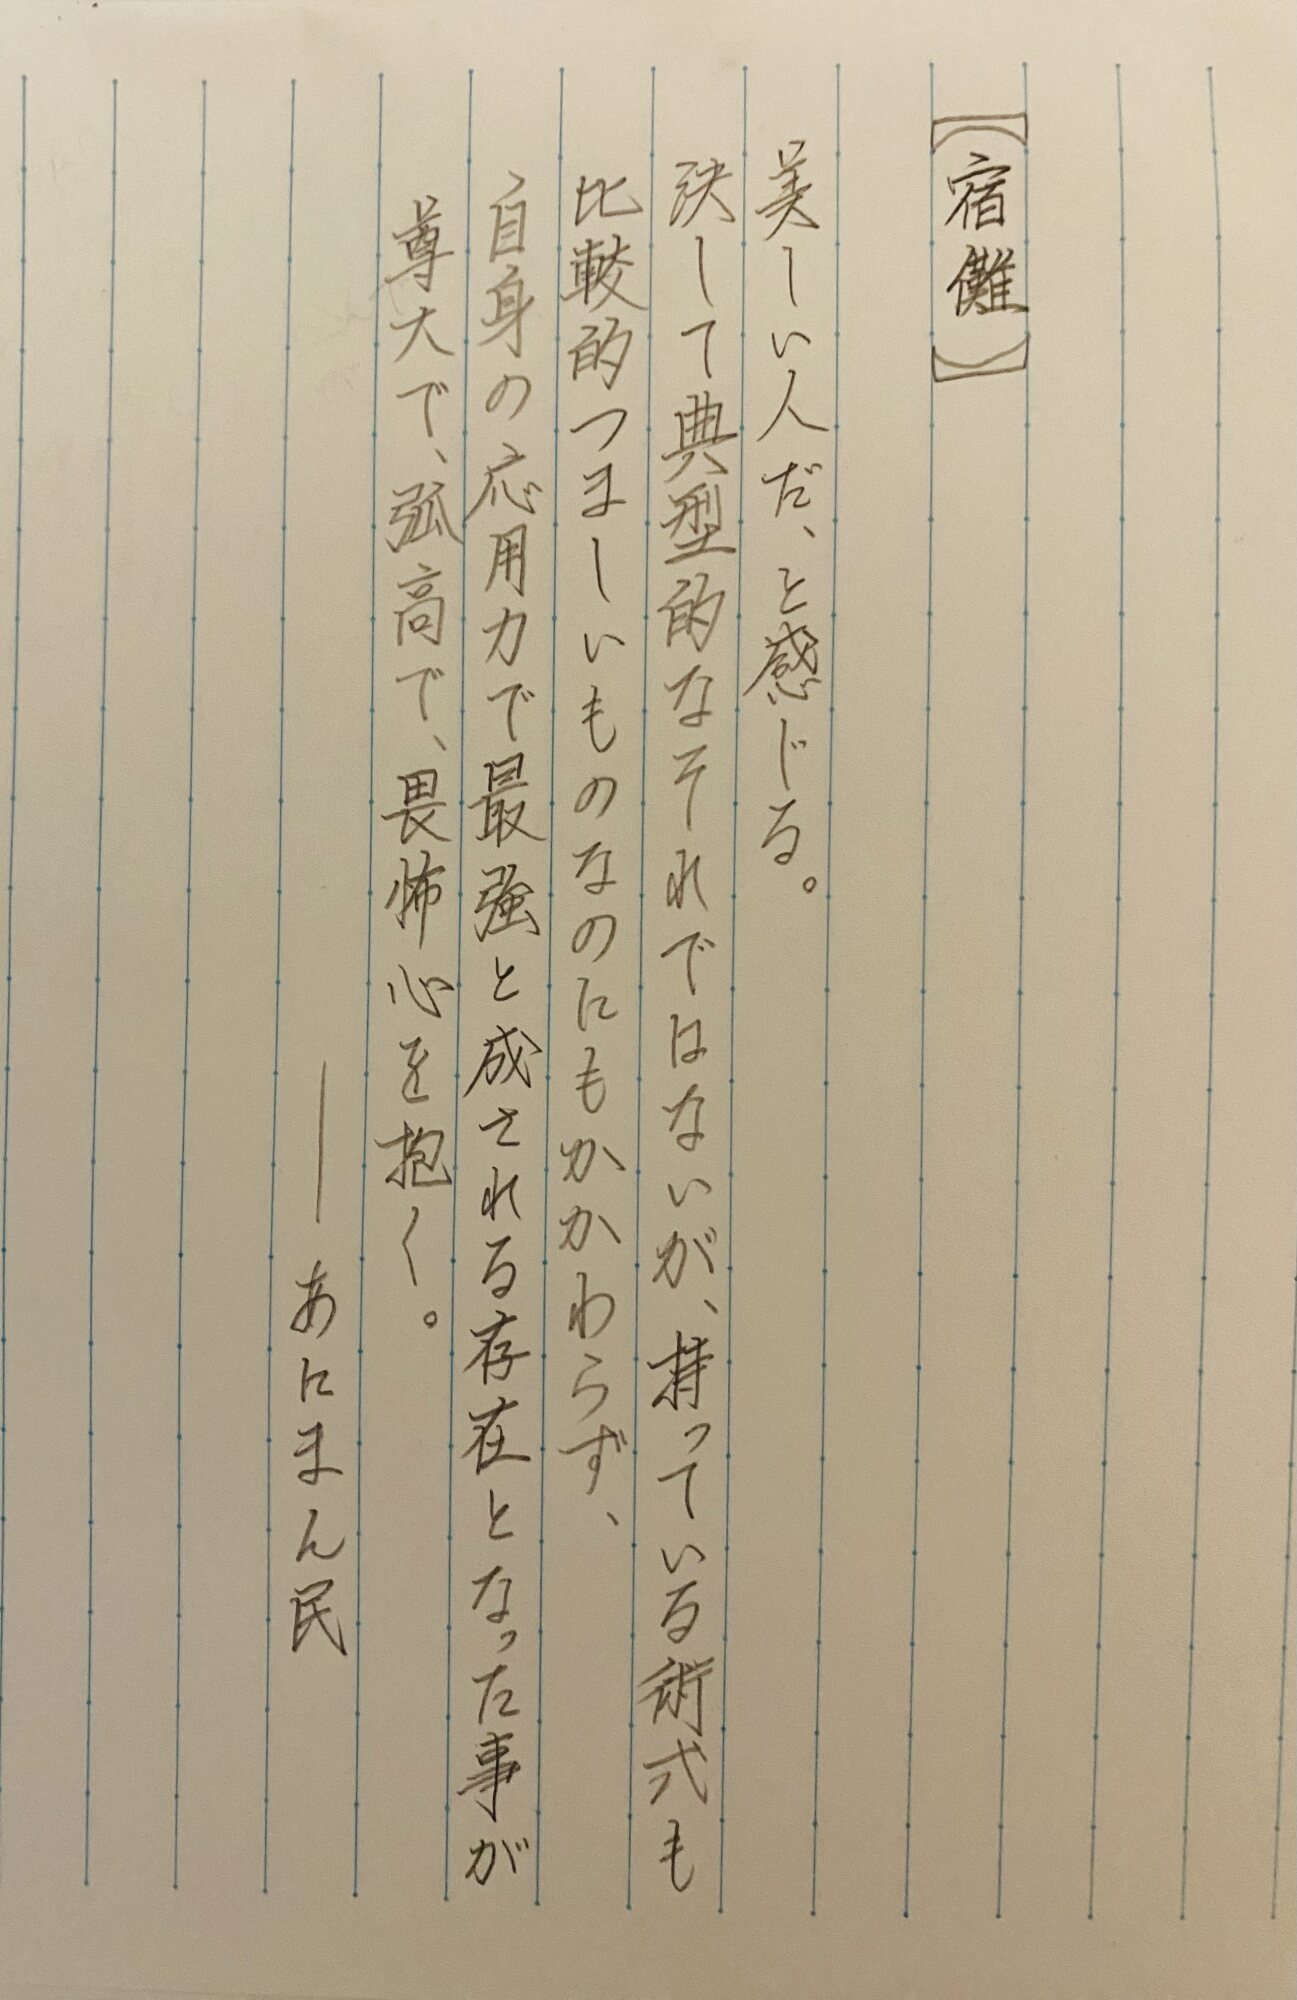 【宿儺】
美しい人だ、と感じる。
決して典型的なそれではないが、持っている術式も
比較的つましいものなのにもかかわらず、
自身の応用力で最強と成される存在となった事が
尊大で、弧高で、畏怖心を抱く。
――あにまん民